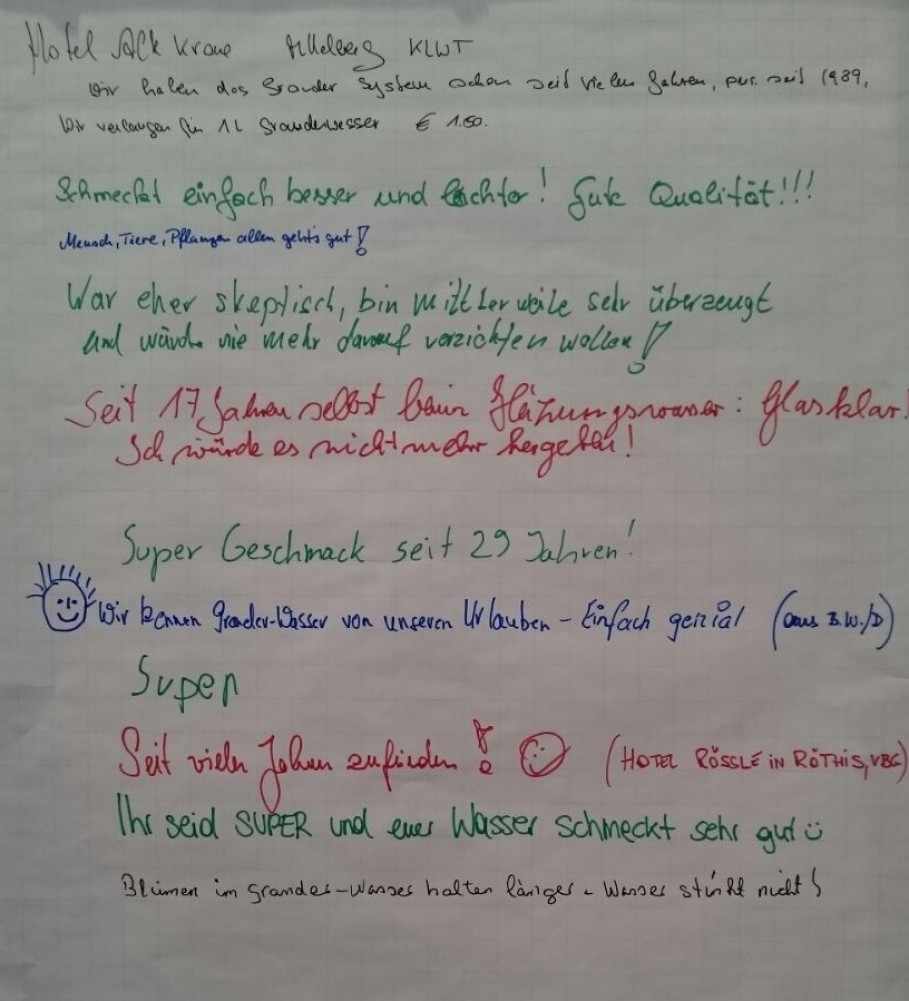 Hotel Alte Krone Mittelberg KLWT
Wir haben das Grander System schon seit vielen Jahren, seit 1989,
Wir verlangen für 1L Granderwasser € 1.50.
Schmeckt einfach besser und leichter! Gute Qualität!!!
Mensch, Tiere, Pflanzen allen geht's gut!
War eher skeptisch, bin mittlerweile sehr überzeugt
und würde nie mehr darauf verzichten wollen!
Seit 17 Jahren selbst beim Heizungswasser: Glasklar!
Ich würde es nicht mehr hergeben!
Super Geschmack seit 29 Jahren!
Wir kennen Grander-Wasser von unseren Urlauben - Einfach genial (aus B.W./D)
Super
Seit vielen Jahren zufrieden! (HOTEL RÖSSLE IN RÖTHIS, VBG)
Ihr seid SUPER und euer Wasser schmeckt sehr gut ü
Blumen im Grander-Wasser halten länger - Wasser stinkt nicht!